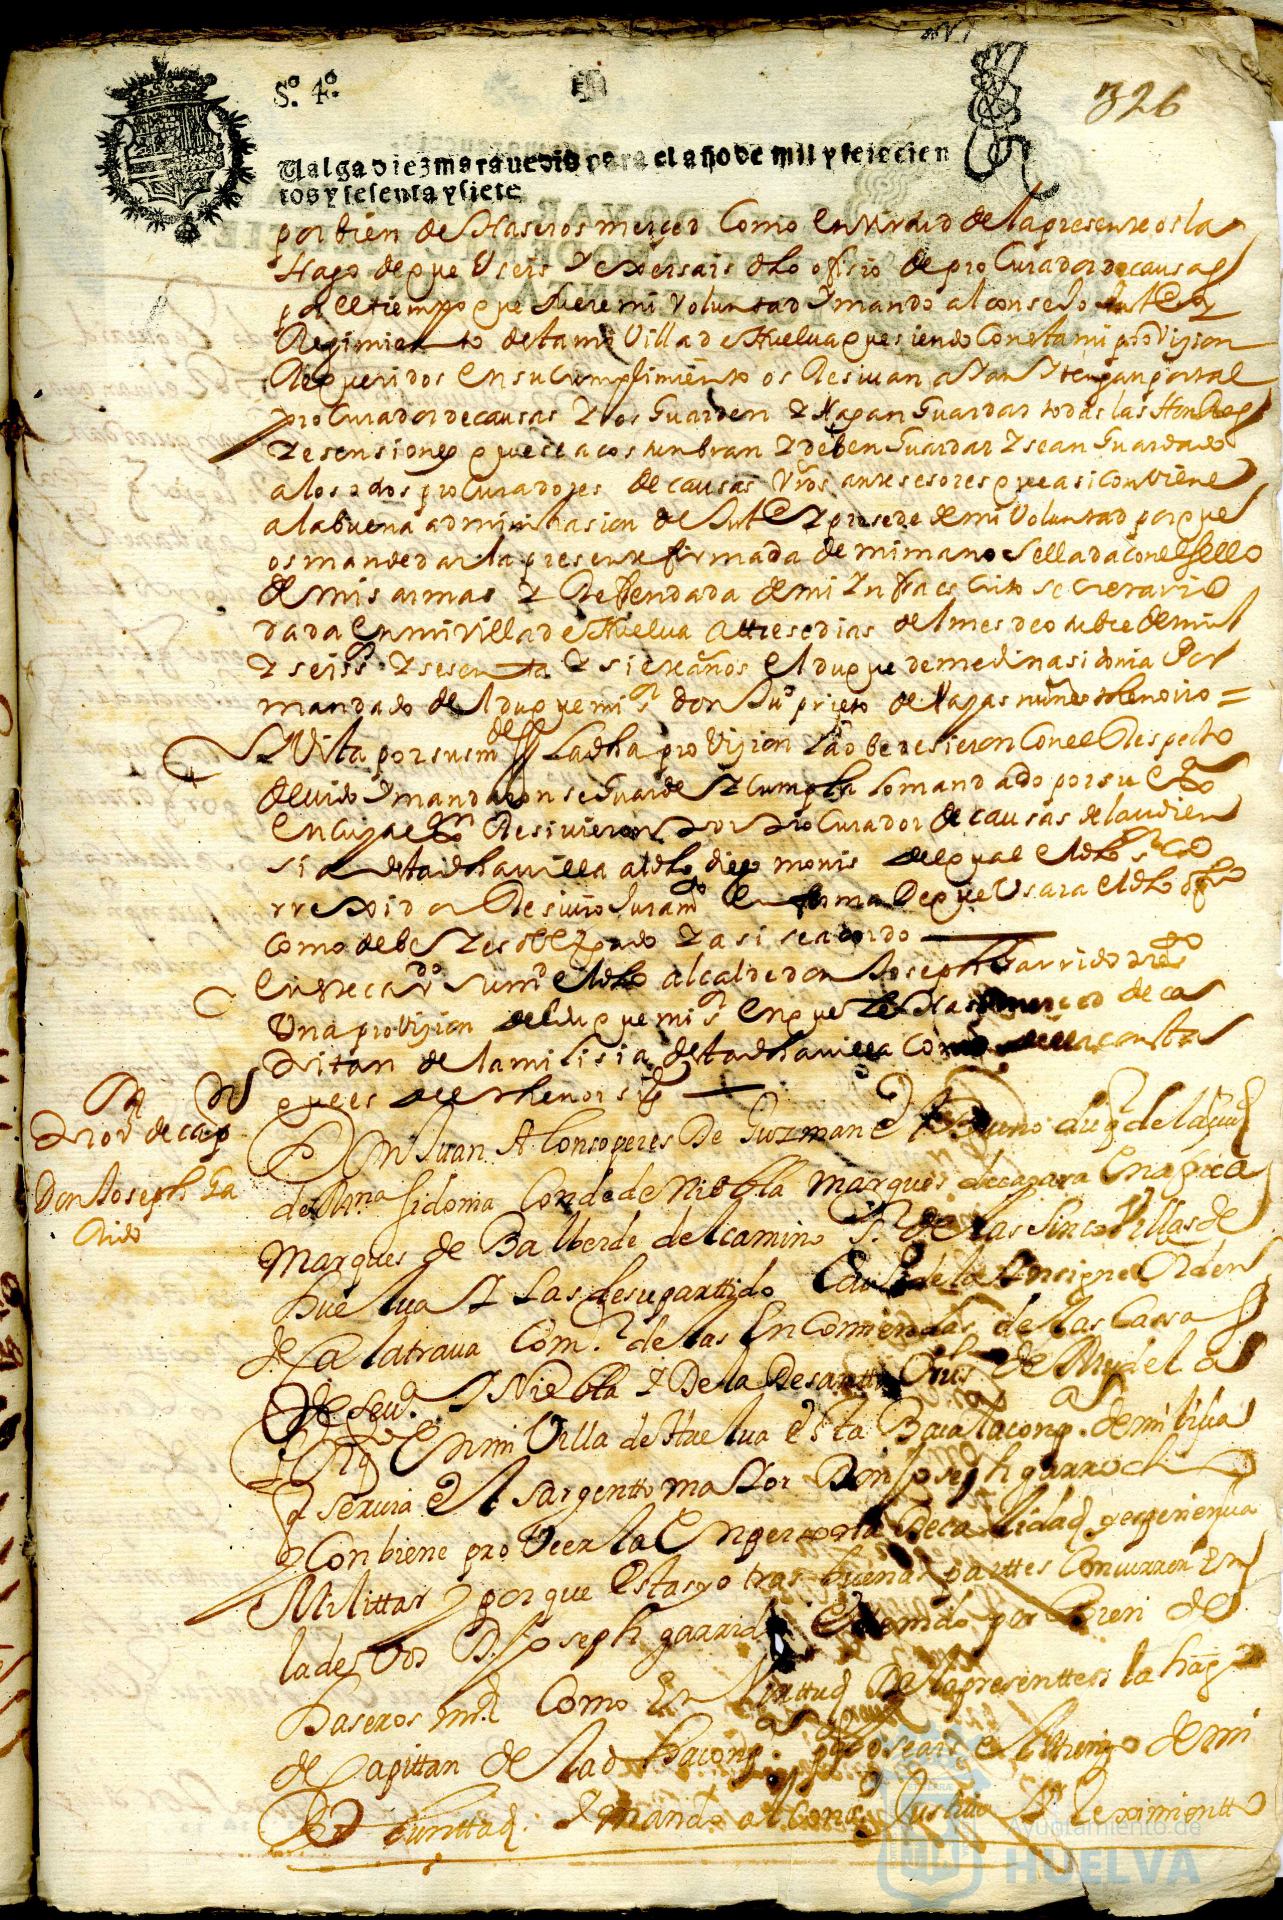 S.º 4.º
326
Valga diez maravedis para el año de mil y seiscien
tos y sesenta y siete
por bien de Haseros merced Como En virtud de la presente os la
Hago de que Useis y exersais dho ofisio de proCurador de causas
por el tiempo que fuere mi Voluntad y mando al consejo Just.ª y
Regimiento desta mi Villa de Huelva que siendo Con esta mi proVision
Requeridos En su Cumplimiento os Resivan ayan y tengan por tal
proCurador de causas y os Guarden y Hagan Guardar todas las Honrras
y esensiones que se acostunbran y deben Guardar y sean Guardado
a los ddos proCuradores de causas Vros antesesores que asi conViene
a la buena administrasion de Just.ª y prosede de mi Voluntad por que
os mande dar la presente firmada de mi mano Sellada con el sello
de mis armas y Refrendada de mi Infraescrito secretario
dada En mi villa de Huelva A trese dias del mes de otubre de mil
y seisº y sesenta y siete años El duque de medina sidonia Por
mandado del duque mi sr don Juº prieto de Hayas nuñes theniro =
Vista por sus mds la dha proVision la obedesieron Con el Respecto
devido y mandaron se Guarde y cumpla lo mandado por su Exª
En cuya exon Resivieron por proCurador de causas de la audien
sia desta dha villa al dho diego monis del qual El dho sr Co
rrexidor Resivio Juramº En forma de que Usara El dho ofº
como debe y es obligado y asi se acordo
En este cavdº su md El dho alcalde don Joseph Garrido
Una proVision del duque mi sr En que le Hase merced de ca
pitan de la milisia desta dha villa Como della consta
que es del thenor sigte
Pror de cap
Don Joseph Ga
rrido
Don Juan Alonso peres De Guzman El Bueno duq de la ciud
de Mna sidonia Conde de Niebla Marques de cazaza En africa
Marques de Balberde del camino Sr. de las Sinco Villas de
huelua y las de su parttido Cauº de la Insigne Orden
de Calatraua Com.r de las Encomiendas de las Cassas
de Seuª y Niebla y De la De santta Crus de Mudela
Por qto En mi Villa de Huelua Esta Baca la compª de milicia
q seruia El sargentto maior Don Joseph garrocho
y Conbiene proVeerla En persona De calidad y esperiencia
Milittar y porque Estas y otras buenas parttes Concurren En
la de Vos D. Joseph garrido E tenido por Bien de
haseros md Como En Virttud De la presentte os la hago
de Capittan de la dha compª por q lo seais El tienpo de mi
Boluntad. y mando al Conº Justicia y Reximientto
Ayuntamiento de
HUELVA